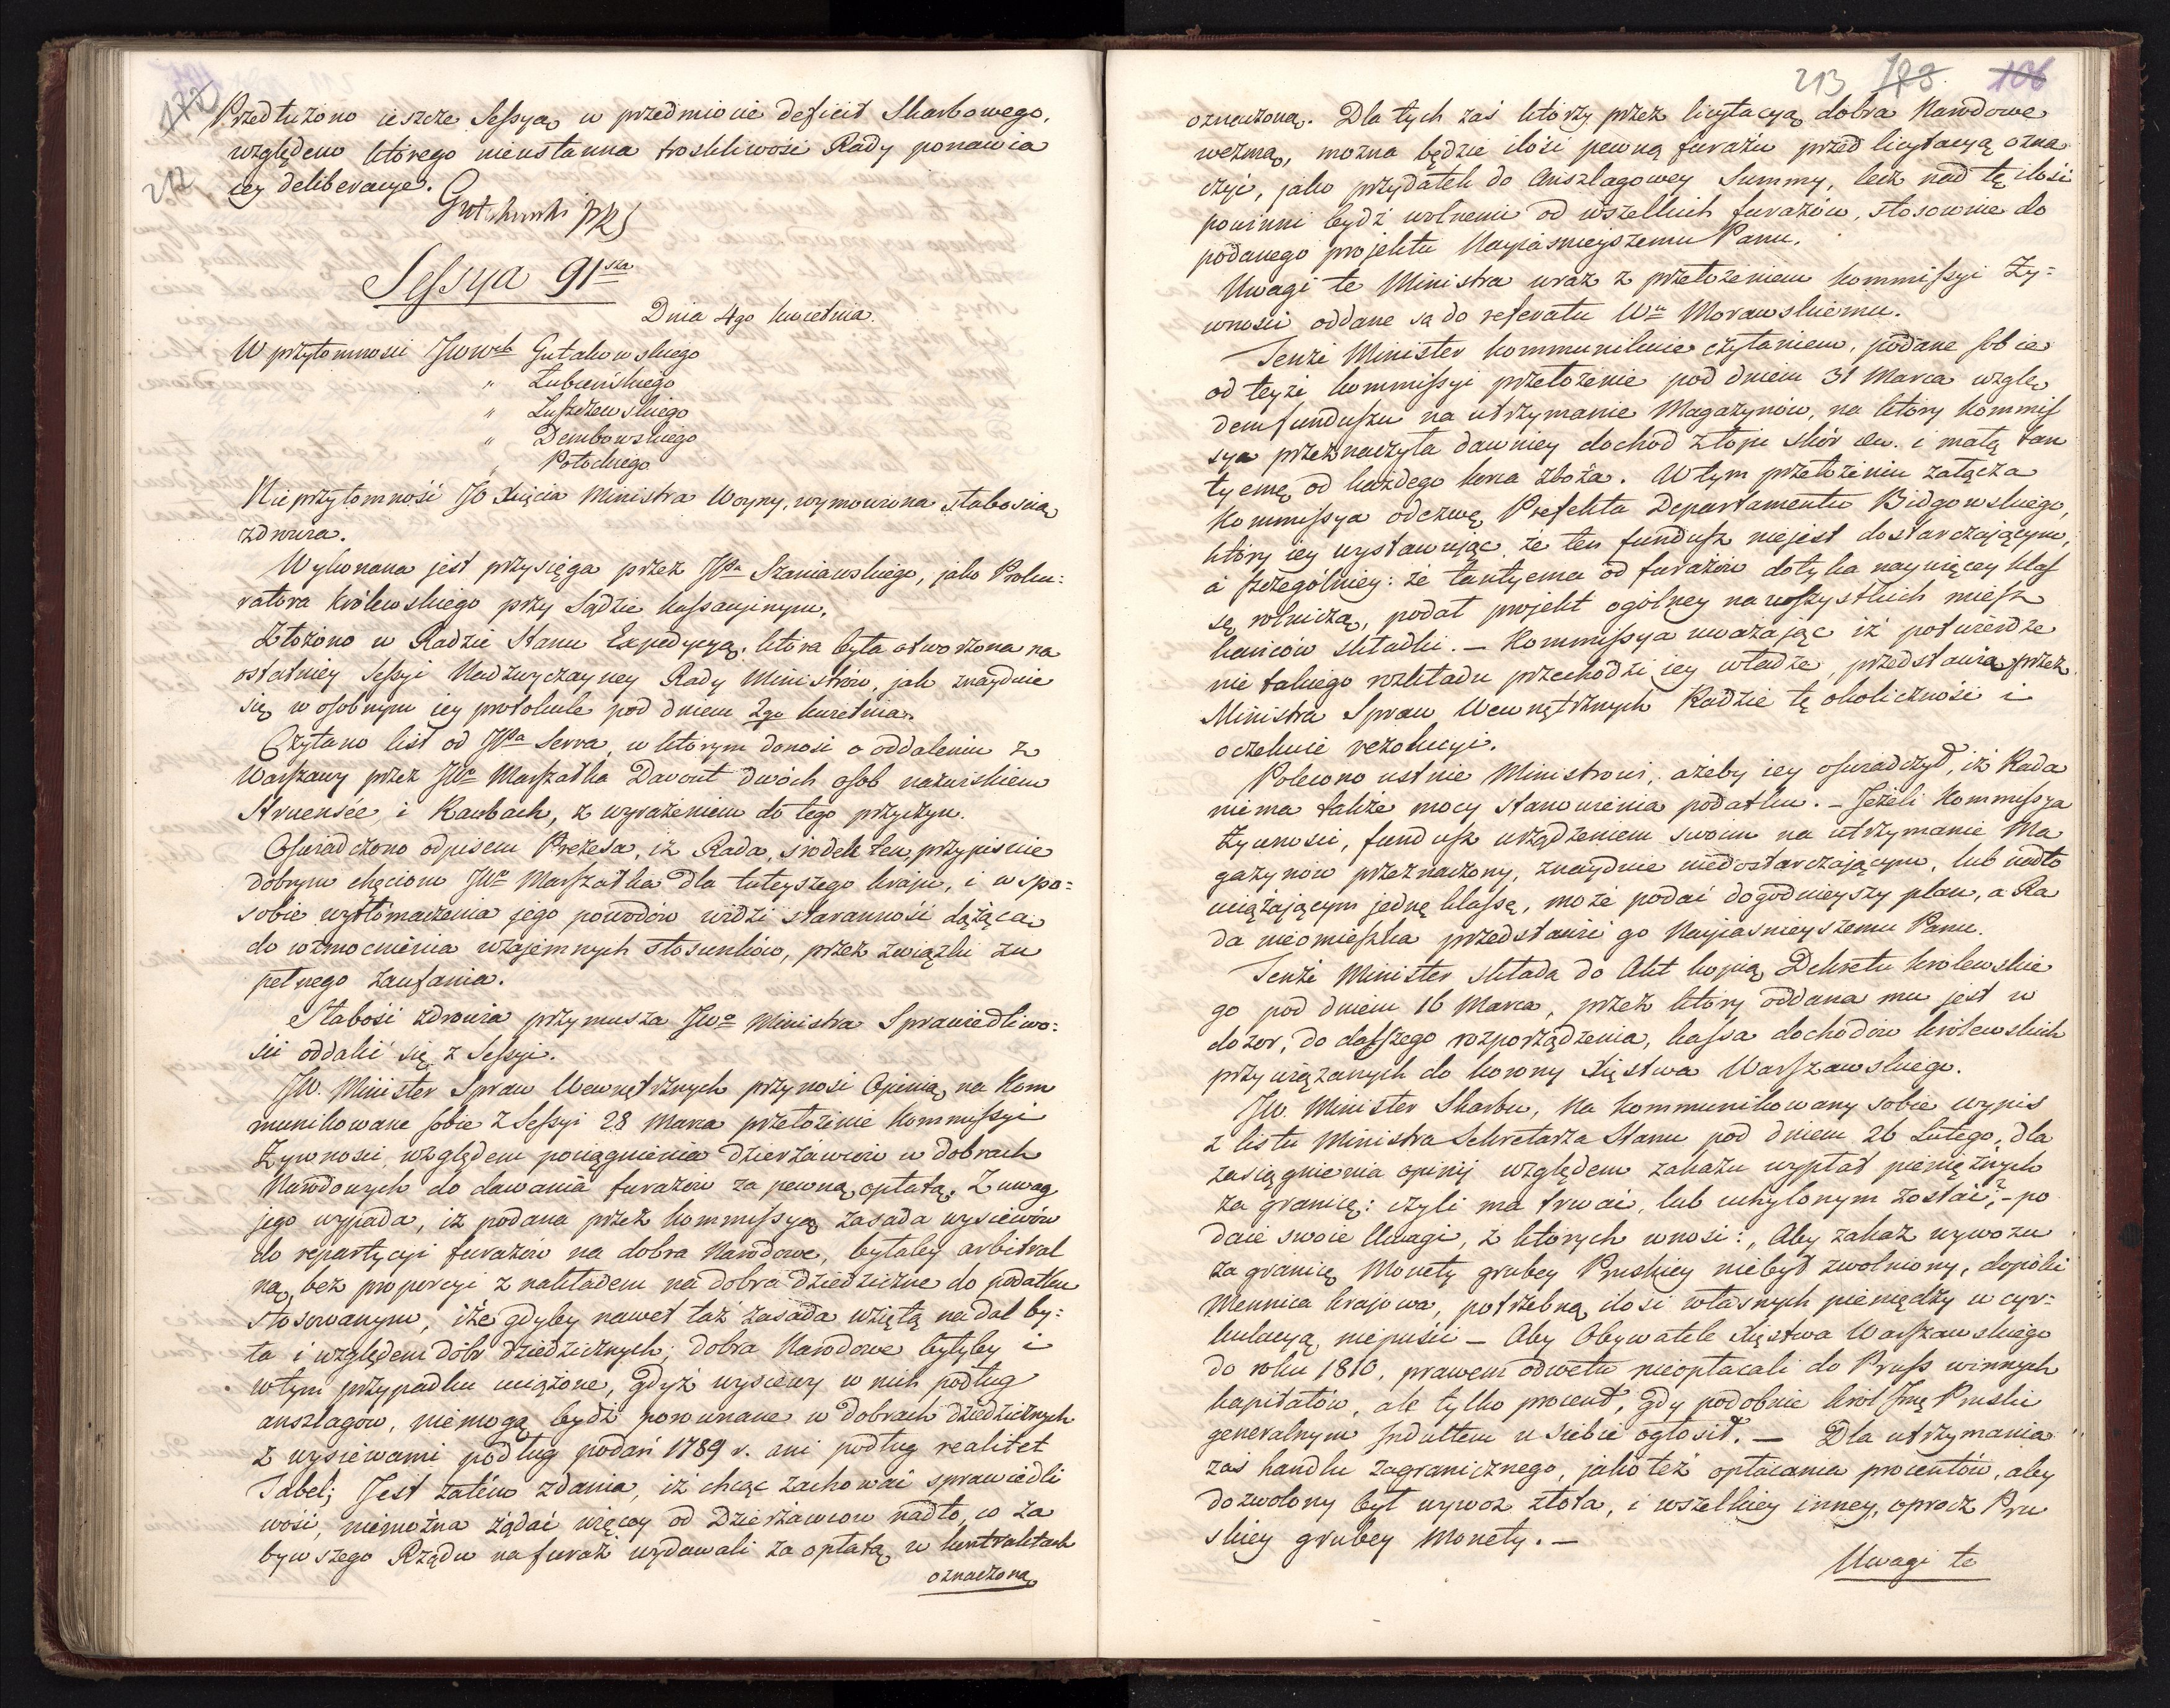 172
212
Przedłużono ieszcze Sessyą w przedmiocie deficit Skarbowego,
względem którego nieustanna troskliwość Rady ponawia
iey deliberacye.
Gutakowski
Sessya 91sza
Dnia 4go kwietnia.
W przytomności JWWch Gutakowskiego
" Łubieńskiego
" Łuszczewskiego
" Dembowskiego
" Potockiego
Nieprzytomność JO Xięcia Ministra Woyny, wymowiona słabością
zdrowia.
Wykonana jest przysięga przez JPa Szaniawskiego, jako Proku=
ratora Królewskiego przy Sądzie kassacyjnym.
Złożono w Radzie Stanu Expedycyą, która była otworzona na
ostatniey Sessyi Nadzwyczayney Rady Ministrów, jak znayduie
się w osobnym iey protokule pod dniem 2go kwietnia.
Czytano list od JPa Serra, w którym donosi o oddaleniu z
Warszawy przez JWo Marszałka Davout dwóch osób nazwiskiem
Struensée i Kaubach, z wyrażeniem do tego przyczyn.
Oświadczono odpisem Prezesa, iż Rada, środek ten przypisuie
dobrym chęciom JWo Marszałka dla tuteyszego kraju, i w spo=
sobie wytłómaczenia jego powodów widzi staranność dążącą
do wzmocnienia wzajemnych stosunków, przez związki zu
pełnego zaufania.
Słabość zdrowia przymusza JWo Ministra Sprawiedliwo=
ści oddalić się z Sessyi.
JW. Minister Spraw Wewnętrznych przynosi Opinią na Kom
munikowane sobie z Sessyi 28 Marca przełożenie Kommissyi
Żywności, względem pociągnienia Dzierżawców w dobrach
Narodowych do dawania furażów za pewną opłatą. Z uwag
jego wypada, iż podana przez kommissyą zasada wysiewów
do repartycyi furażów na dobra Narodowe, byłaby arbitral
ną, bez proporcyi z nakładem na dobra dziedziczne do podatku
stosowanym, iże gdyby nawet taż zasada wziętą nadal by=
ła i względem dóbr dziedzicznych; dobra Narodowe byłyby i
w tym przypadku uciążone, gdyż wysiewy w nich podług
anszlagów, niemogą bydź porównane w dobrach dziedzicznych
z wysiewami podług podań 1789 r. ani podług realitet
Tabel; Jest zatém zdania, iż chcąc zachować sprawiedli
wość, niemożna żądać więcey od Dzierżawców nadto, co za
bywszego Rządu na furaż wydawali za opłatą w kontraktach
oznaczoną
213 173 106
oznaczoną. Dla tych zaś którzy przez licytacyą dobra Narodowe
wezmą, można będzie ilość pewną furażu przed licytacyą ozna
czyć, jako przydatek do anszlagowey Summy, lecz nad tę ilość
powinni bydź wolnemi od wszelkich furażów, stosownie do
podanego projektu Nayiaśnieyszemu Panu.
Uwagi te Ministra wraz z przełożeniem Kommissyi Ży=
wności oddane są do referatu Wu Morawskiemu.
Tenże Minister kommunikuie czytaniem, podane sobie
od teyże kommissyi przełożenie pod dniem 31 Marca wzglę
dem funduszu na utrzymanie Magazynów, na który Kommis
sya przeznaczyła dawniey dochod z łoju skór etc. i małą tan
tyemę od każdego korca zboża. W tym przełożeniu załącza
Kommissya odezwę Prefekta Departamentu Bidgowskiego,
który iey wystawując, że ten fundusz niejest dostarczającym,
a szczególniey: że tantyema od furażów dotyka naywięcey klas
sę rolniczą, podał projekt ogólney na wszystkich miesz
kańców składki. — Kommissya uważając iż potwierdze
nie takiego rozkładu przechodzi iey władzę, przedstawia przez
Ministra Spraw Wewnętrznych Radzie tę okoliczność i
oczekuie rezolucyi.
Polecono ustnie Ministrowi, ażeby iey oświadczył, iż Rada
niema także mocy stanowienia podatku. — Jeżeli Kommissya
żywności, fundusz urządzeniem swoim na utrzymanie Ma
gazynów przeznaczony, znayduie niedostarczającym, lub nadto
uciążającym jednę klassę, może podać dogodnieyszy plan, a Ra
da nieomieszka przedstawić go Nayiaśnieyszemu Panu.
Tenże Minister składa do Akt kopią Dekretu krolewskie
go pod dniem 16 Marca, przez który oddana mu jest w
dozor, do dalszego rozporządzenia, kassa dochodów królewskich
przywiązanych do korony Xięstwa Warszawskiego.
JW. Minister Skarbu, na kommunikowany sobie wypis
z listu Ministra Sekretarza Stanu pod dniem 26 Lutego, dla
zasiągnienia opinij względem zakazu wypłat pieniężnych
za granicę: czyli ma trwać, lub uchylonym zostać? — po
daie swoie Uwagi, z których wnosi:, Aby zakaz wywozu
za granicę Monety grubey Pruskiey niebył zwolniony, dopóki
Mennica krajowa, potrzebną ilość własnych pieniędzy w cyr=
kulacyą niepuści — Aby Obywatele Xięstwa Warszawskiego
do roku 1810, prawem odwetu nieopłacali do Pruss winnych
kapitałów, ale tylko procent, gdy podobnie król Jmć Pruski
generalnym Indultem u siebie ogłosił. — Dla utrzymania
zaś handlu zagranicznego, jako też opłacania procentów, aby
dozwolony był wywoz złota, i wszelkiey inney, oprocz Pru
skiey grubey Monety. —
Uwagi te